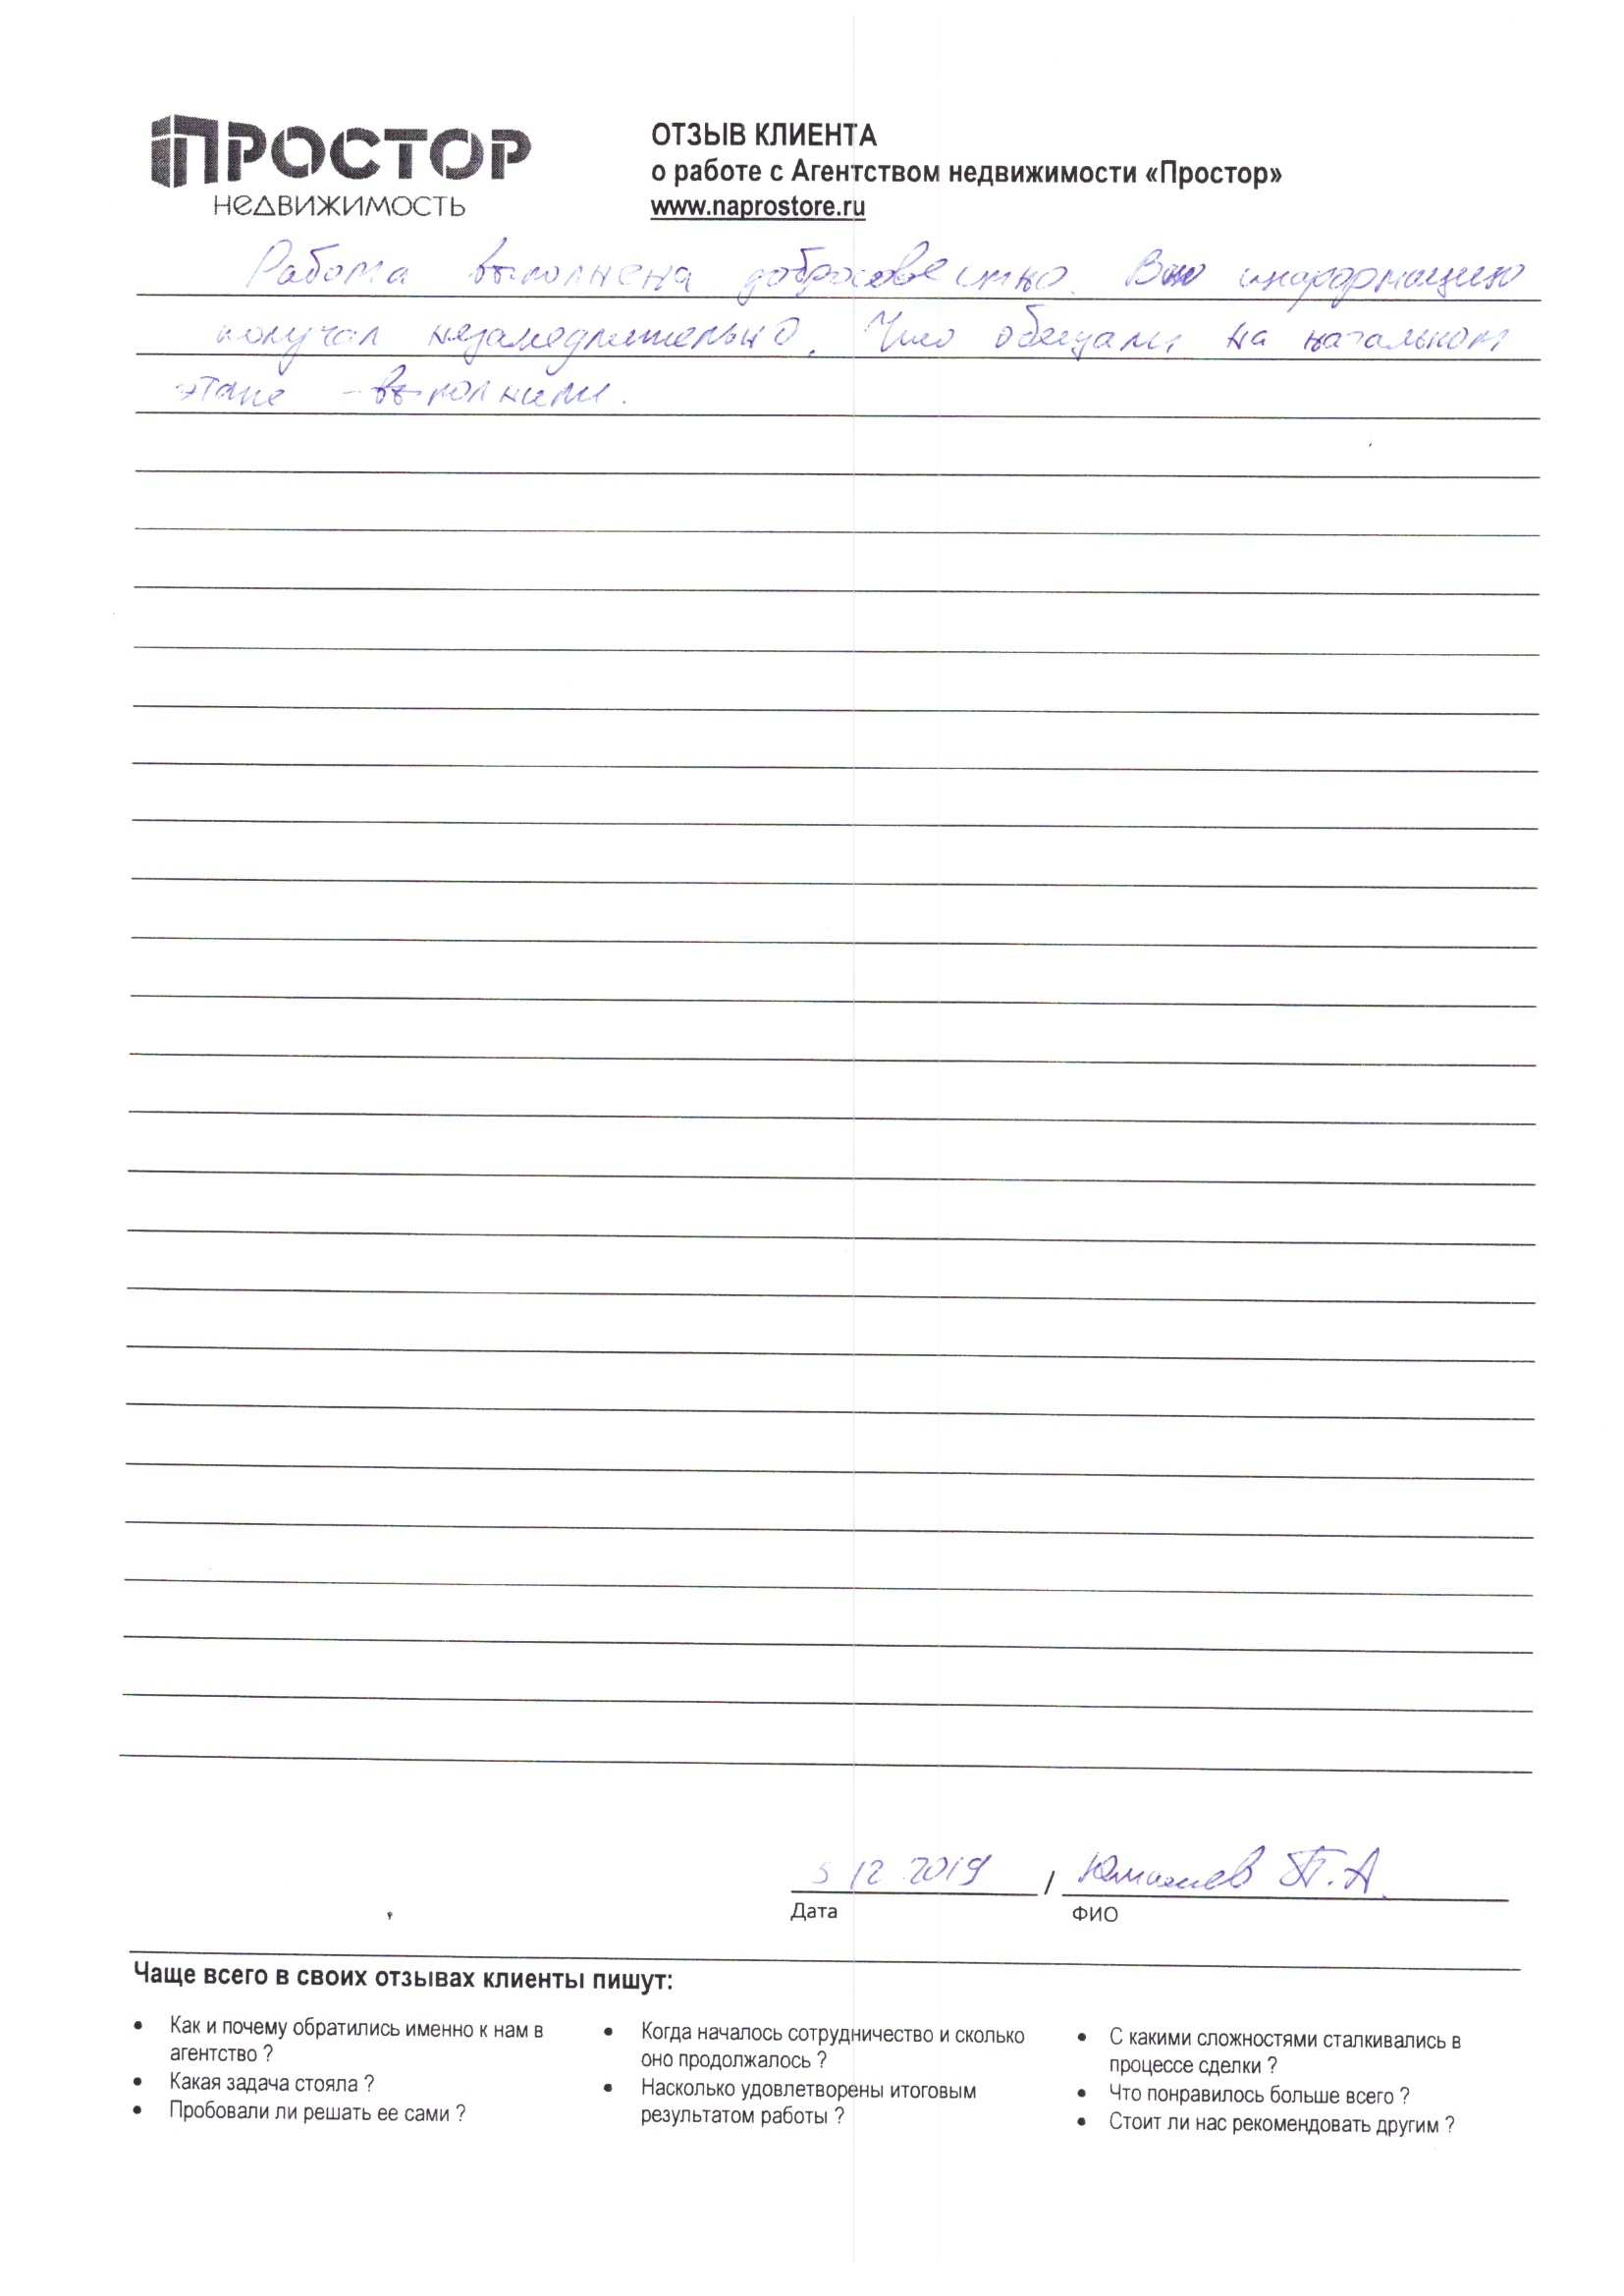 ПРОСТОР
НЕДВИЖИМОСТЬ
ОТЗЫВ КЛИЕНТА
о работе с Агентством недвижимости «Простор»
www.naprostore.ru
Работа выполнена добросовестно. Всю информацию
получал незамедлительно. Что обещали на начальном
этапе - выполнили.
5 12 2019 / П.А.
Дата ФИО
Чаще всего в своих отзывах клиенты пишут:
• Как и почему обратились именно к нам в
агентство ?
• Какая задача стояла ?
• Пробовали ли решать ее сами ?
• Когда началось сотрудничество и сколько
оно продолжалось ?
• Насколько удовлетворены итоговым
результатом работы ?
• С какими сложностями сталкивались в
процессе сделки ?
• Что понравилось больше всего ?
• Стоит ли нас рекомендовать другим ?